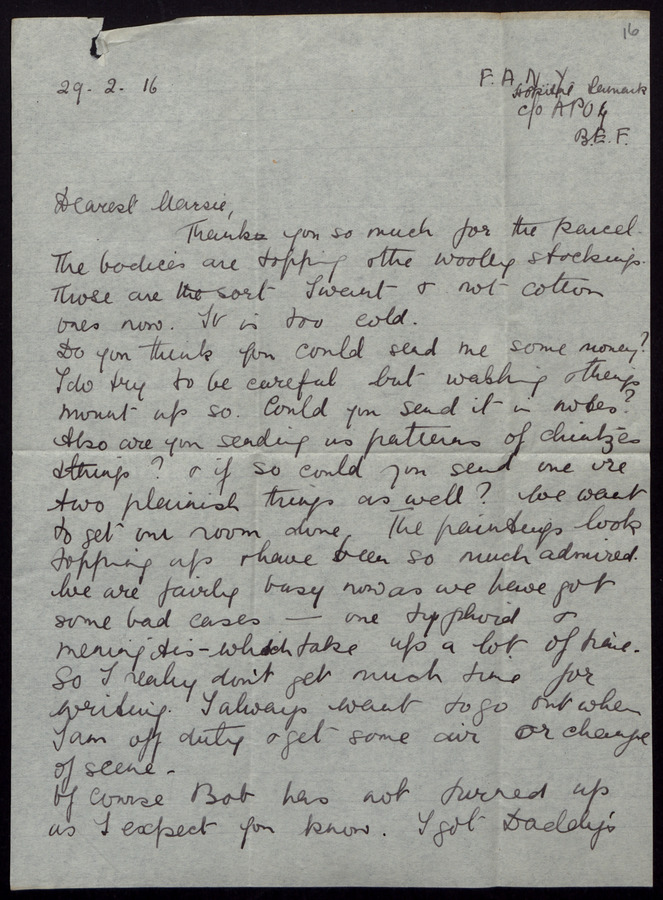 16
29. 2. 16
F. A. N. Y
Hospital
c/o APO 4
B.E.F.
Dearest
Thanks you so much for the parcel.
The bodices are topping & the wooley stockings.
Those are the sort I want & not cotton
ones now. It is too cold.
Do you think you could send me some money?
I do try to be careful but washing & things
mount up so. Could you send it in notes?
Also are you sending us patterns of chintzes
& things? & if so could you send one or
two plainish things as well? We want
to get our room done, The paintings look
topping up & have been so much admired.
We are fairly busy now as we have got
some bad cases — one typhoid &
meningitis – which take up a lot of time.
So I really don't get much time for
writing. I always want to go out when
I am off duty & get some air or change
of scene –
Of course Bob has not turned up
as I expect you know. I got Daddy's